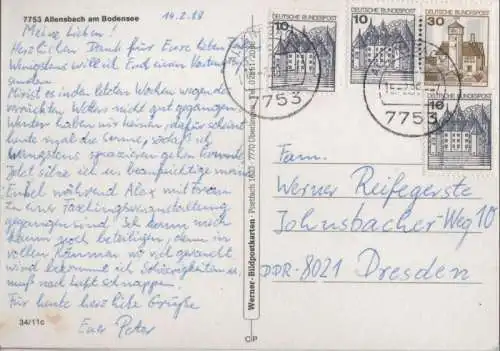 7753 Allensbach am Bodensee
14.2.88
Meine Lieben!
Herzlichen Dank für Eure lieben
Wenigstens will ich Euch einen Kartengruß
senden.
Mir ist es in den letzten Wochen wegen des
verrückten Wetters nicht gut gegangen.
Winter haben wir keinen, dafür scheint
heute mal die Sonne, sodaß ich
wenigstens spazieren gehen konnte.
Jetzt sitze ich u. beaufsichtige meine
Enkel während Alex mit Frau
zu einer Faschingsveranstaltung
gegangen sind. Ich kann mich
kaum noch beteiligen, denn in
vollen Räumen wo viel geraucht
wird bekomme ich Schwierigkeiten u.
muß nach Luft schnappen.
Für heute herzliche Grüße
Euer Peter
34/11c
Werner-Bildpostkarten · Postfach 1630 · 7770 Überlingen
C/P
DEUTSCHE BUNDESPOST
10
DEUTSCHE BUNDESPOST
10
DEUTSCHE BUNDESPOST
30
DEUTSCHE BUNDESPOST
10
7753
7753
Fam.
Werner Reifegerste
Johnsbacher-Weg 10
DDR-8021 Dresden